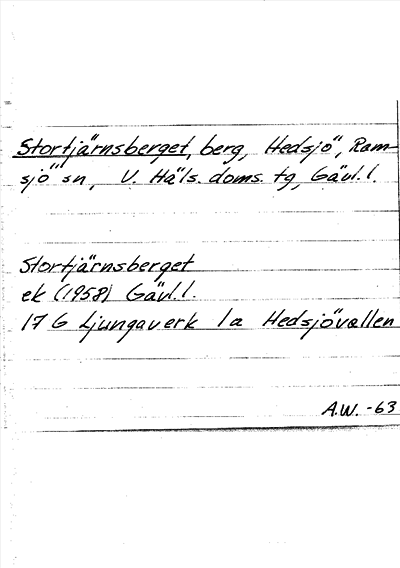 Stortjärnsberget, berg, Hedsjö, Ram-
sjö sn, V. Häls. doms. tg, Gävl. l.
Stortjärnsberget
ek (1958) Gävl. l.
17 G Ljungaverk 1a Hedsjövallen
A.W. -63